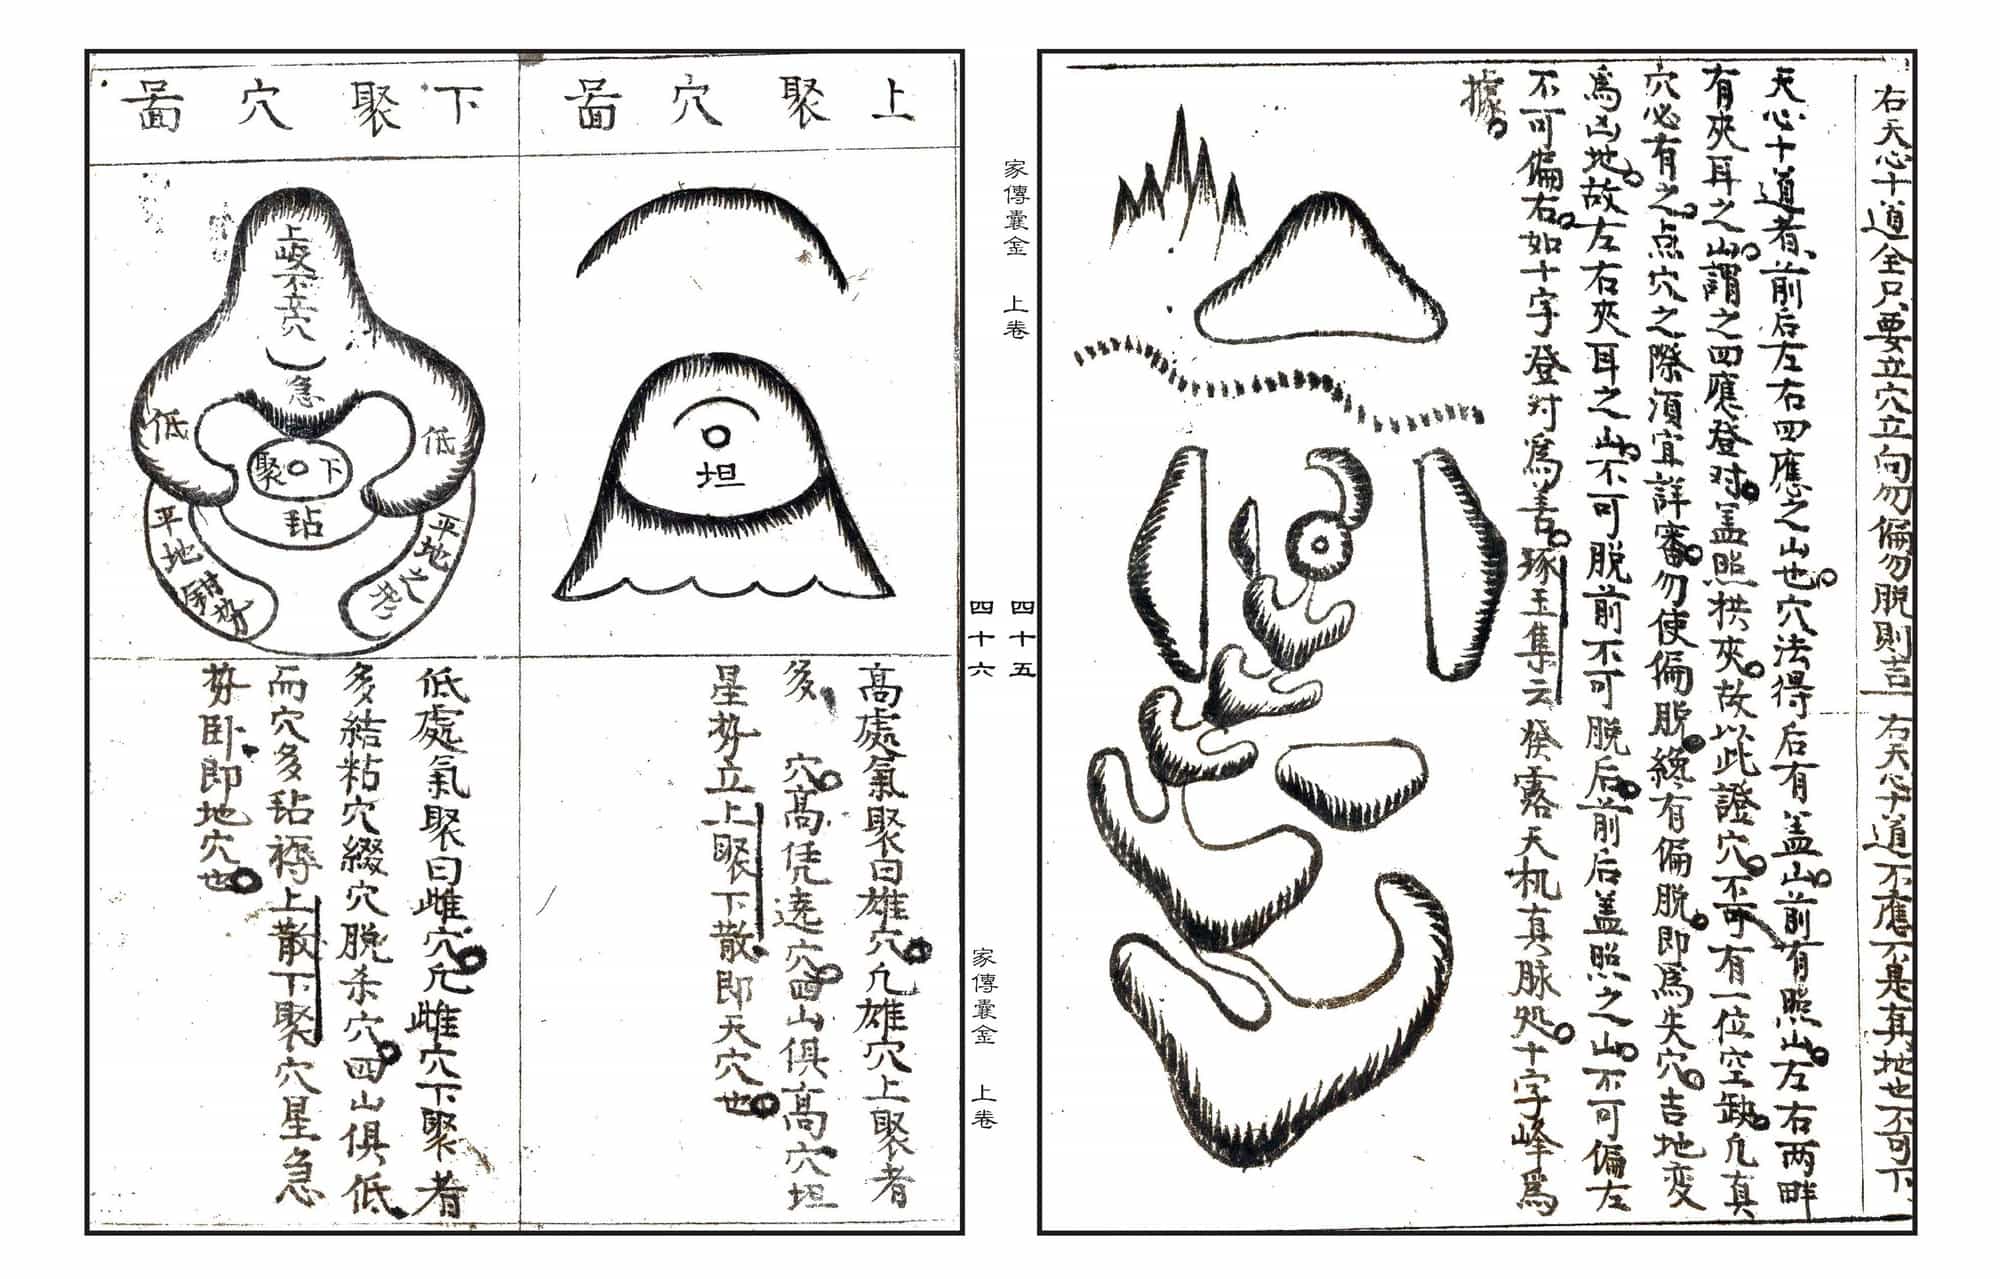 右天心十道全只要立穴立向勿偏勿脱則吉
右天心十道不應不是真地也不可下
天心十道者前后左右四應之山也穴法得后有盖山前有照山左右两畔
有夾耳之山謂之四應登对盖照拱夾故以此證穴不可有一位空缺凢真
穴必有之点穴之際湏宜詳審勿使偏脱縂有偏脱即爲失穴吉地変
爲凶地故左右夾耳之山不可脱前不可脱后前后盖照之山不可偏左
不可偏右如十字登对爲善琢玉集云發露天机真脉処十字峰爲
據
家傳囊金 上卷
四十五
四十六
家傳囊金 上卷
上聚穴啚
坦
高處氣聚曰雄穴凢雄穴上聚者
多 穴高凭逺穴四山俱高穴坦
星势立上聚下散即天穴也
下聚穴啚
上峻不立穴
急
低
低
聚 下
玷
平地
平地
低處氣聚曰雌穴凢雌穴下聚者
多結粘穴綴穴脱杀穴四山俱低
而穴多玷褥上散下聚穴星急
势卧即地穴也